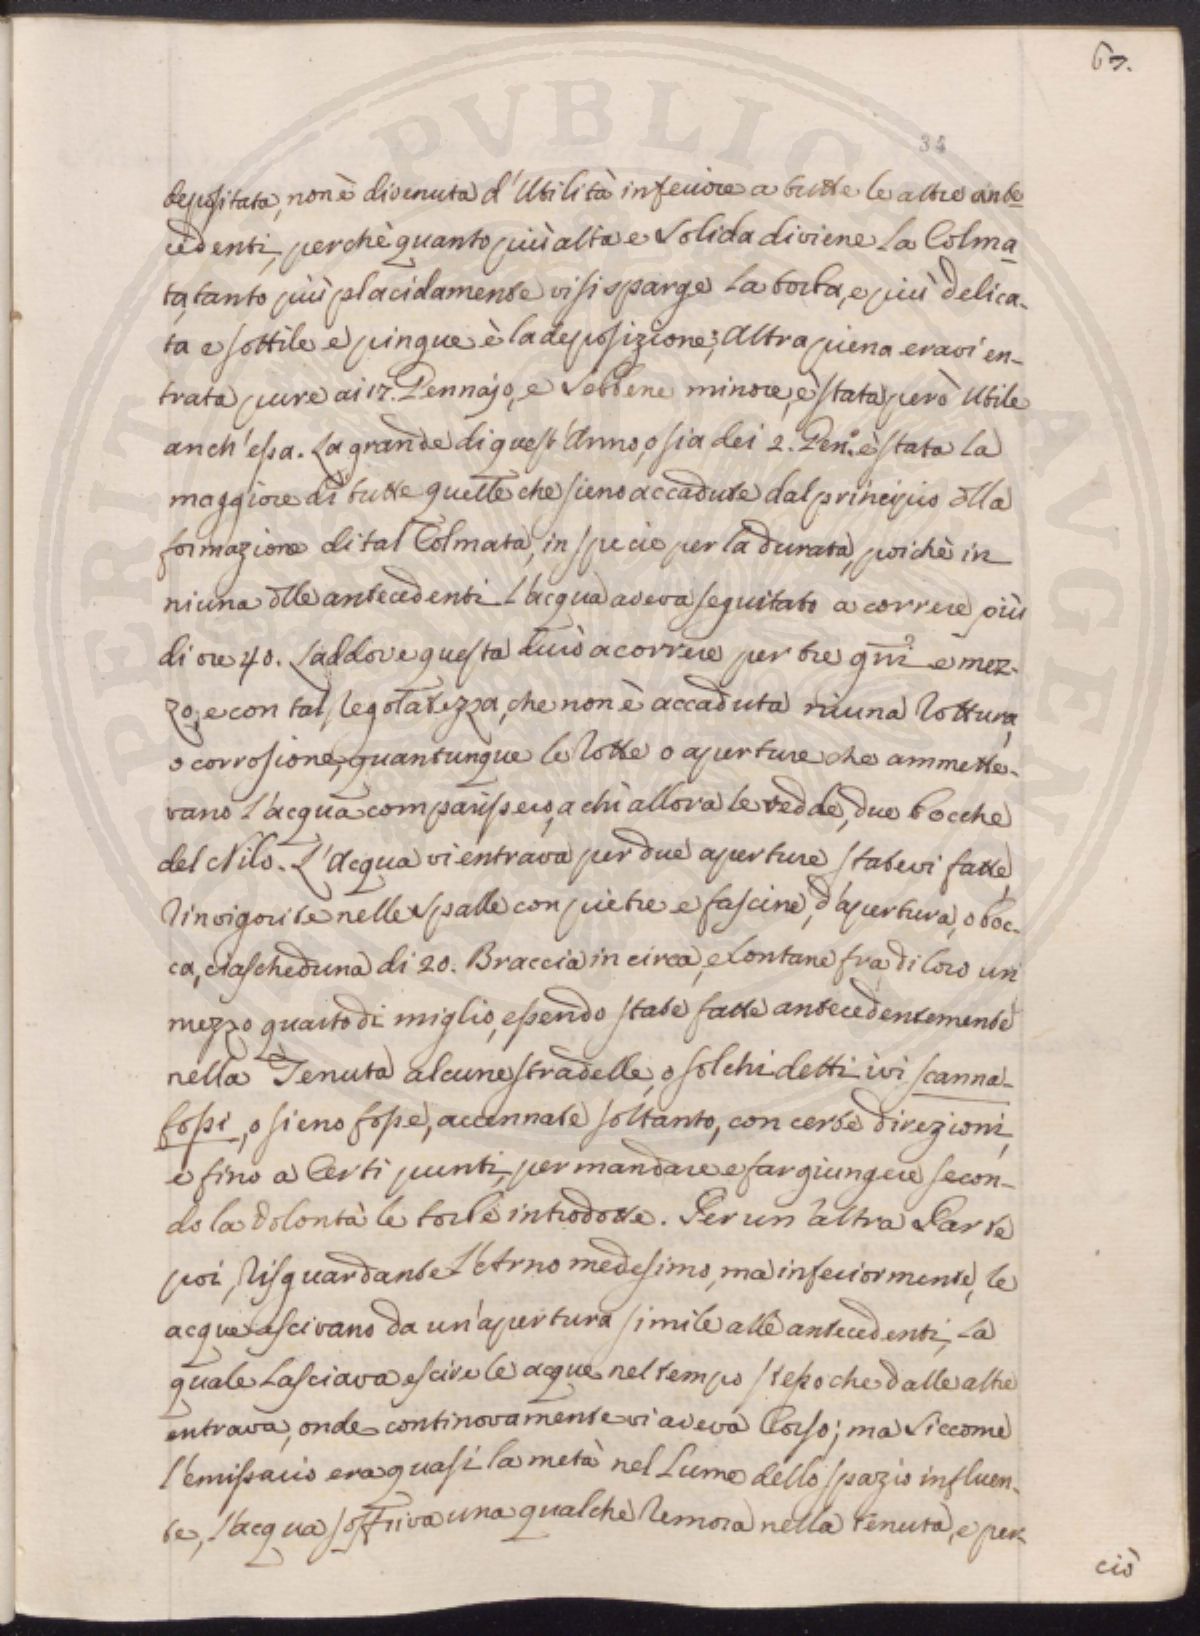 67.
34
depositata, non è divenuta d'Utilità inferiore a tutte le altre ante
cedenti, perchè quanto più alta e solida diviene la Colma
ta, tanto più placidamente vi si sparge la torba, e più delica-
ta e sottile e pingue è la deposizione; Altra piena eravi en-
trata pure ai 17. Gennajo, e sebbene minore, è stata però Utile
anch'essa. La grande di quest'Anno, o sia dei 2. Gen.º è stata la
maggiore di tutte quelle che sieno accadute dal principio dlla
formazione di tal Colmata, in specie per la durata, poichè in
niuna dlle antecedenti l'acqua aveva seguitato a correre più
di ore 40. Laddove questa durò a correre per tre grni e mez-
zo, e con tal regolatezza, che non è accaduta niuna rottura,
o corrosione, quantunque le rotte o aperture che ammette-
vano l'acqua comparissero, a chi allora le vedde, due bocche
del Nilo. L'Acqua vi entrava per due aperture statevi fatte,
rinvigorite nelle spalle con pietre e fascine, d'apertura, o boc-
ca, ciascheduna di 20. Braccia in circa, e lontane fra di loro un
mezzo quarto di miglio, essendo state fatte antecedentemente
nella Tenuta alcune stradelle, o solchi detti ivi scanna-
fossi, o sieno fosse, accennate soltanto, con certe direzioni,
e fino a Certi punti, per mandare e far giungere secon-
do la volontà le torbe introdotte. Per un'altra Parte
poi, risguardante l'Arno medesimo, ma inferiormente, le
acque escivano da un'apertura simile alle antecedenti, la
quale lasciava escire le acque nel tempo stesso che dalle altre
entrava, onde continovamente vi aveva Corso; ma siccome
l'emissario era quasi la metà nel Lume dello spazio influen-
te, l'acqua soffriva una qualche remora nella tenuta, e per-
ciò